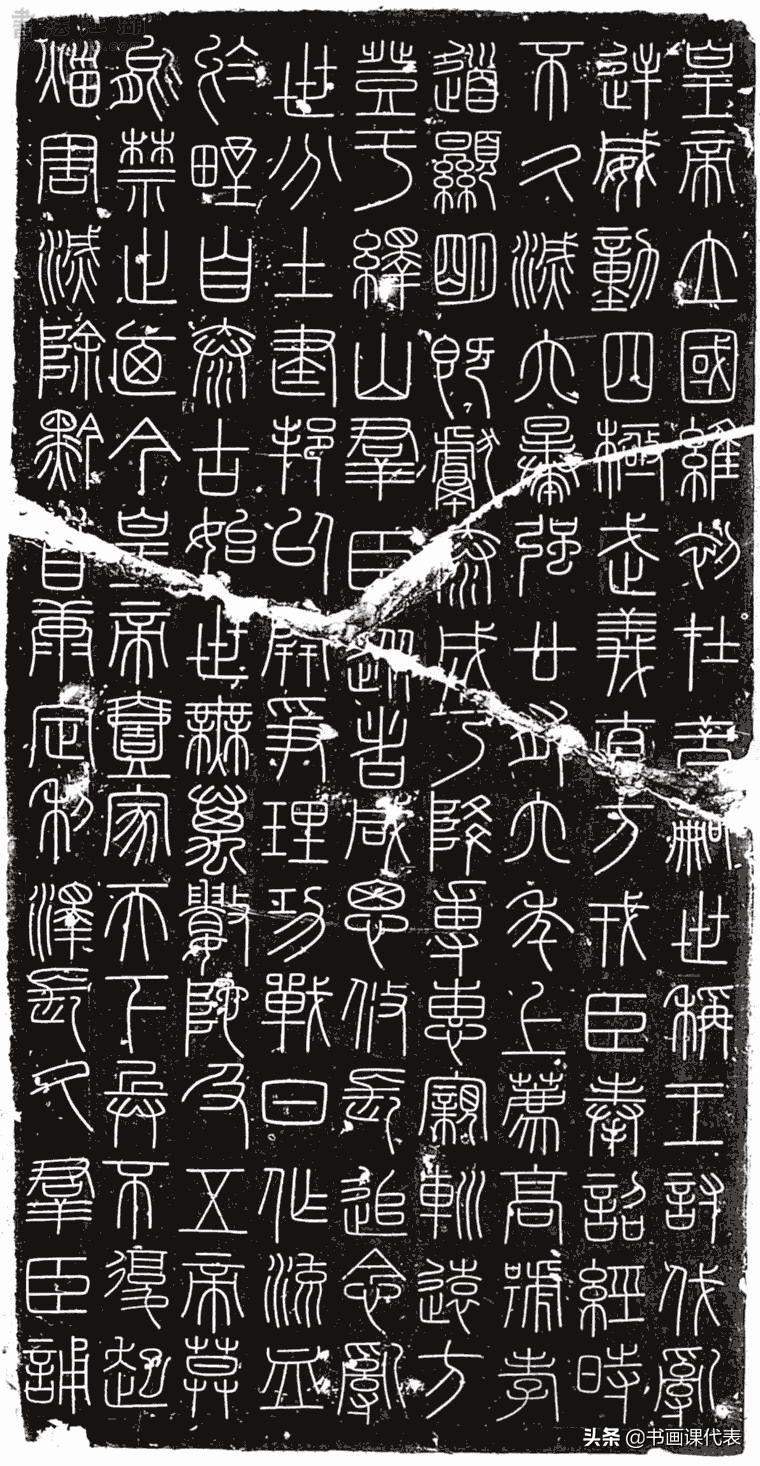 皇帝立國維初在昔嗣世稱王討伐亂
逆威動四極武義直方戎臣奉詔經時
不久滅六暴強廿有六年上薦高號孝
道顯明既獻泰成乃降專惠親巡遠方
登于繹山羣臣從者咸思攸長追念亂
世分土建邦以開爭理功戰日作流血
於野自泰古始世無萬數陀及五帝莫
能禁止廼今皇帝壹家天下兵不復起
災害滅除黔首康定利澤長久羣臣誦
头条 @书画课代表